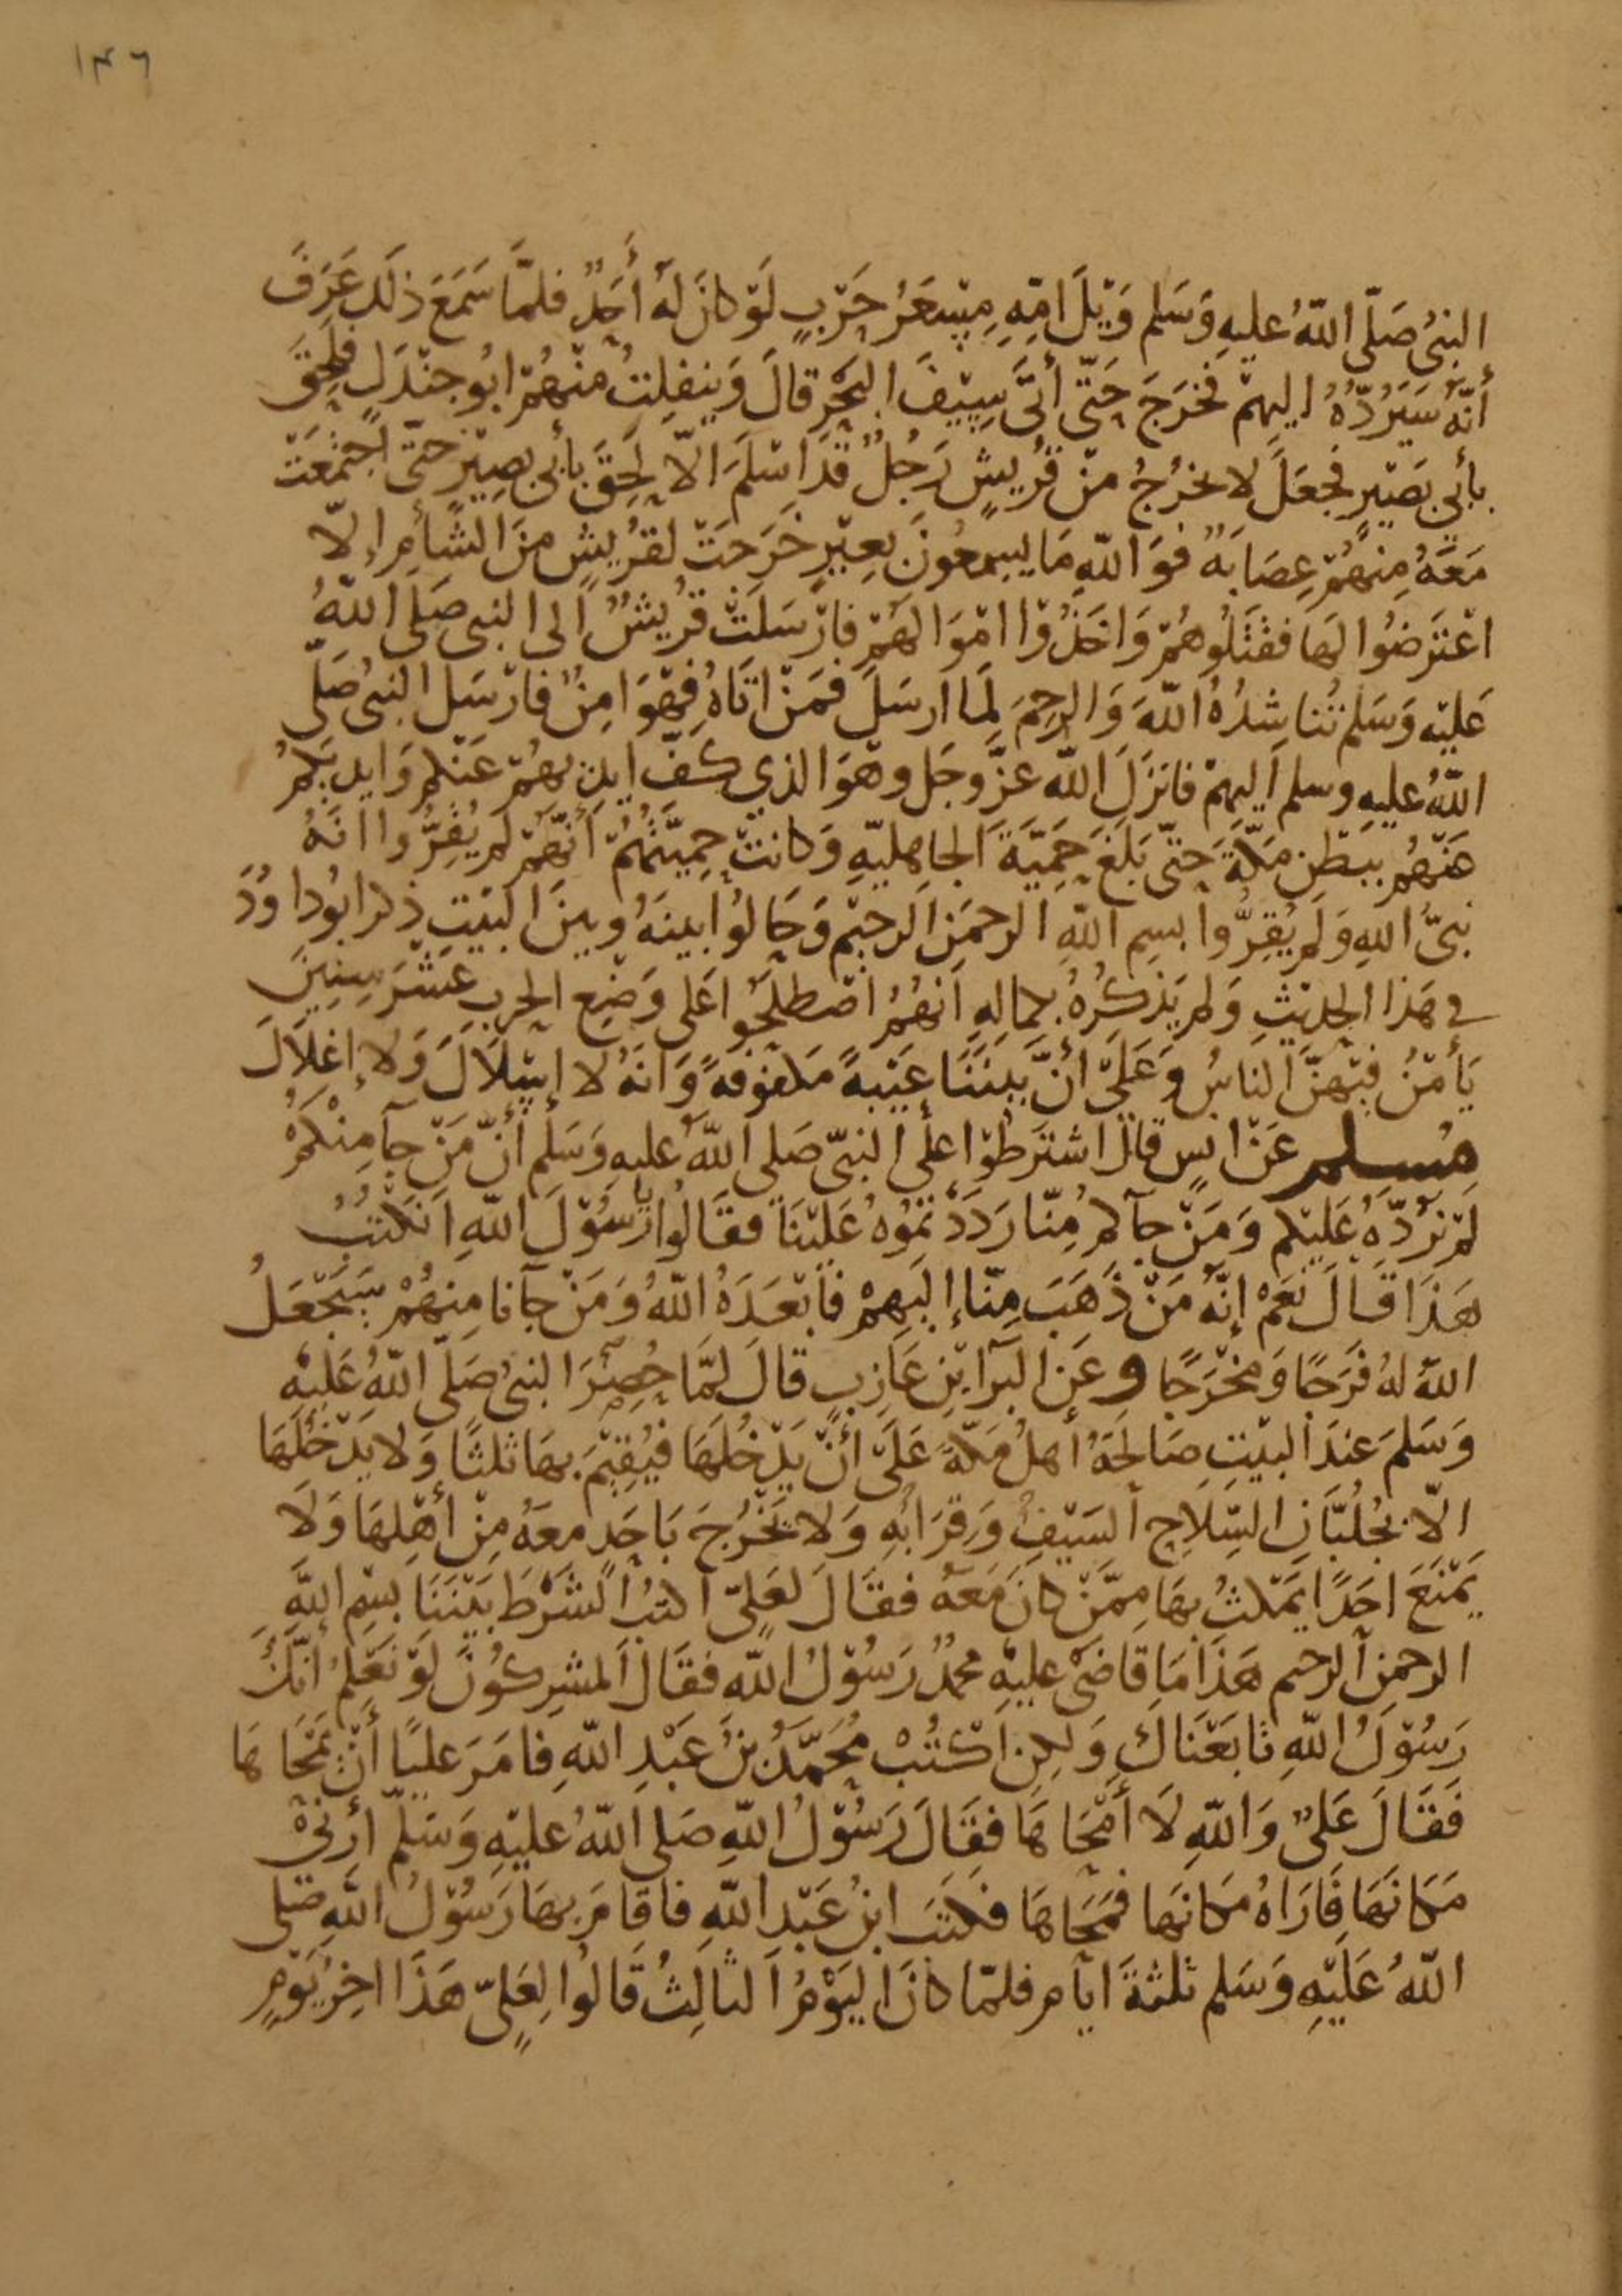 ١٣٦
النبىُ صَلّى اللّهُ عليهِ وَسَلم وَيْلَ امّهِ مِسْعَرُ حَرْبٍ لَوْ كانَ لَهُ أَحَدٌ فلمّا سَمَعَ ذلَك عَرَفَ
أنّهُ سَيَرُدّهُ اليهمْ فخَرَجَ حَتّى أتَى سِيْفَ البَحْرِ قالَ وَينفلِتُ منْهُمْ ابُو جنْدَلٍ فلَحِقَ
بأبي بَصَيْرٍ فجَعَلَ لا يخرُجُ منْ قُرُيشٍ رَجُلٌ قدَ اسْلَمَ الاّ لَحِقَ بأبى بصِيْرٍ حتّى اجتمعَتْ
مَعَهُ مِنهُمْ عِصَابَةٌ فوَ اللّهِ مَا يسمعُونَ بعِيْرٍ خَرَجَتْ لقُرُيشٍ منَ الشَأمِ إلاّ
اعْتَرَضُوا لهَا فقتَلُوهُمْ وَاخَذُوْا امْوَالهَمْ فارْسَلَتْ قرُيْشٌ الى النبى صَلى اللّهُ
عَليْه وَسَلم تُناشِدُهُ اللّهَ وَالرحِمَ لَمَا ارسَلَ فمَنْ اتَاهُ فهْوَ امِنٌ فارْسَل النبىُ صَلّى
اللّهُ عليهِ وسلم اليهِمْ فانزَلَ اللّه عزَّ وجَل وهوَ الذي كفّ ايديهُمْ عَنْكم وَايديَكمْ
عَنْهُمْ ببَطْنِ مَكّةَ حَتّى بَلَغَ حَمِيَّةَ الجاهليّهِ وَكانتْ حِمِيّتُهُمْ أنّهُمْ لم يُقِرُّوا انّهُ
نبىُّ اللهِ وَلَم يُقِرُّوا بسِم اللّهِ الرحمَنِ الرحيْم وَحَالُوا بينَهُ وبينَ البيْتِ ذكر ابُو داوُدَ
في هَذا الحِديْثِ وَلم يَذكرُهُ بكمالِهِ انهُمُ اصْطلحُوا عَلى وَضْع الحَرب عَشْرَ سِنِينَ
يَأمَنُ فيْهنّ الناسُ وَعَلىَ أنّ بيْننَا عَيْبَةً مَكفوفةً وَانهُ لا إسْلاَلَ وَلا إغلاَلَ
مُسلم عَنْ انسٍ قال اشترَطُوْا علَى النبىّ صَلى اللّهُ عليه وَسَلم أنّ مَنْ جآ مِنْكمُ
لمْ نرُدّهِ عَليْكم وَمَنْ جآكم مِنّا رَدَدْتمُوْهُ عَليْنَا فقَالُوا يا رسُوْلَ اللّهِ انَكْتبُ
هَذَا قَالَ نَعَمْ إنّهُ مَنْ ذَهَبَ مِنّا إليَهِمْ فأبْعَدَهُ اللّهُ وَمَنْ جآنا مِنهُمْ سَيَجْعَلُ
اللّهُ لهُ فرَجًا وَمخْرَجًا وعَنِ البَرآ ابْنِ عَازِبٍ قالَ لمّا حُصِرَ النبىُ صَلّى اللّهُ عَليْهِ
وَسَلمَ عندَ البيْتِ صَالحَهُ أهلُ مَكّةَ عَلىَ أنْ يَدْخُلَهَا فيُقِيْمَ بهَا ثلثًا وَلا يَدْخُلَهَا
الاّ بجُلُبّانِ السّلاحِ السَيْفِ وَقِرَابُهِ وَلا يَخْرُجَ بَاحَدٍ معَهُ مِنْ أهْلِهَا وَلَا
يَمْنَعَ احَدًا يَمْكثُ بهَا مِمّنْ كانَ مَعَهُ فقَالَ لعَلِىّ اكتُب الشرْطَ بَيْننَا بسْمِ اللّهِ
الرحمنِ الرحيم هَذَا مَا قاضَى عليْهِ محمّدٌ رَسُوْلُ اللّهِ فقَال المشرِكوُنَ لوْ نَعْلمُ انّكَ
رَسُوْلُ اللّهِ تَابَعْنَاكَ وَلكِنِ اكْتُبْ مُحَمَّدُ بنُ عَبْدِ اللّهِ فامَرَ عليًا أنْ يَمْحَاهَا
فَقَالَ عَلىٌ وَاللّهِ لَا أَمْحَاهَا فقَالَ رَسُوْلُ اللّهِ صَلى اللّهُ عليْهِ وَسَلّم أرِنىْ
مَكانَهَا فَارَاهُ مكانهَا فمحَاهَا فكتَبَ ابنُ عَبْدِ اللّهِ فاقَامَ بهَا رَسُوْلُ اللّهِ صَلى
اللّهُ عَليْهِ وَسَلم ثلثةَ ايآم فلمّا كانَ اليَوْمُ الثالِثُ قَالُوا لِعَلِىّ هَذَا اخِرُ يَوْمٍ